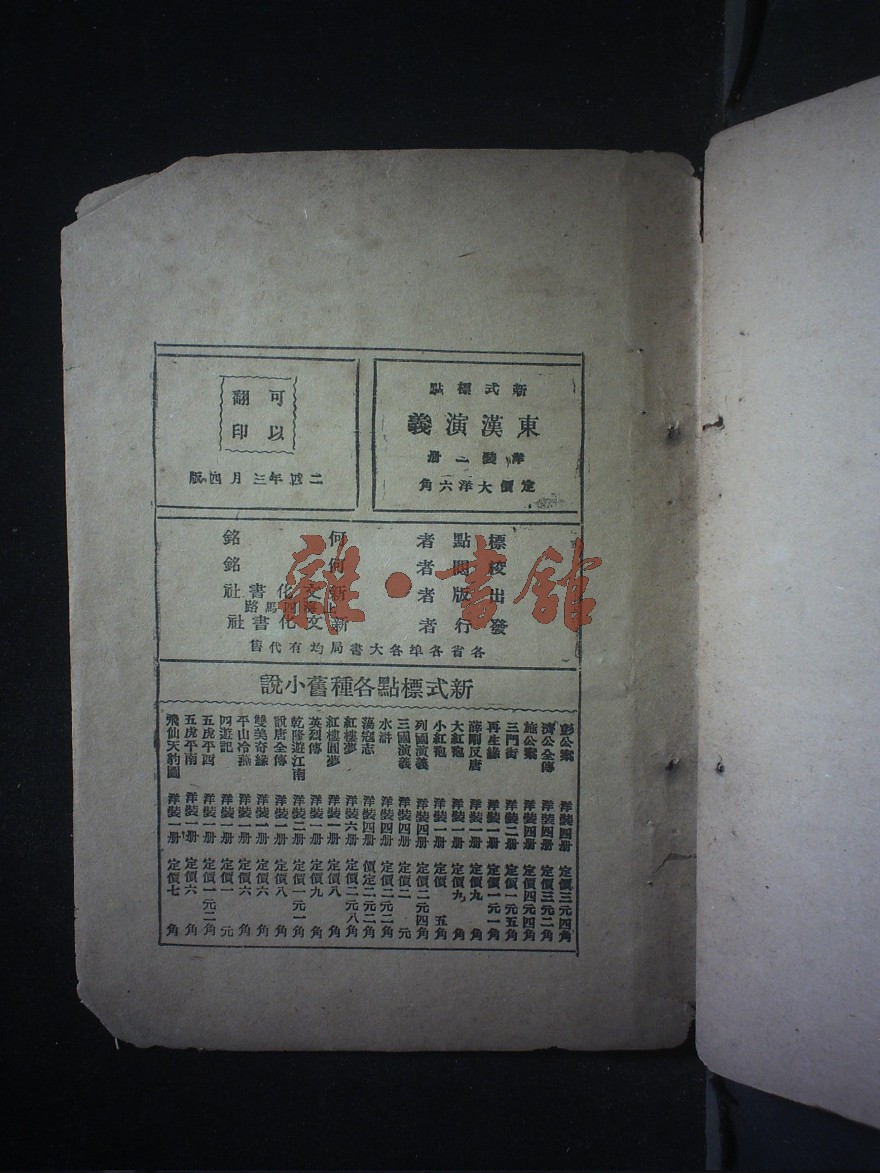 新式標點
東漢演義
洋裝二册
定價大洋六角
可以
翻印
二四年三月四版
標點者 何銘
校閱者 何銘
出版者 新文化書社
上海四馬路
發行者 新文化書社
各省各埠各大書局均有代售
新式標點各種舊小說
彭公案 洋裝四册 定價三元四角
濟公全傳 洋裝四册 定價三元二角
施公案 洋裝四册 定價四元四角
三門街 洋裝二册 定價一元五角
再生緣 洋裝一册 定價一元一角
薛剛反唐 洋裝一册 定價九角
大紅袍 洋裝一册 定價九角
小紅袍 洋裝一册 定價五角
列國演義 洋裝四册 定價二元四角
三國演義 洋裝四册 定價二元
水滸 洋裝四册 定價二元二角
蕩寇志 洋裝四册 價定二元二角
紅樓夢 洋裝六册 定價二元八角
紅樓圓夢 洋裝一册 定價八角
英烈傳 洋裝一册 定價九角
乾隆遊江南 洋裝二册 定價一元一角
說唐全傳 洋裝一册 定價八角
雙美奇緣 洋裝一册 定價六角
平山冷燕 洋裝一册 定價六角
四遊記 洋裝一册 定價一元
五虎平西 洋裝一册 定價一元二角
五虎平南 洋裝一册 定價六角
飛仙天豹圖 洋裝一册 定價七角
雜·書館